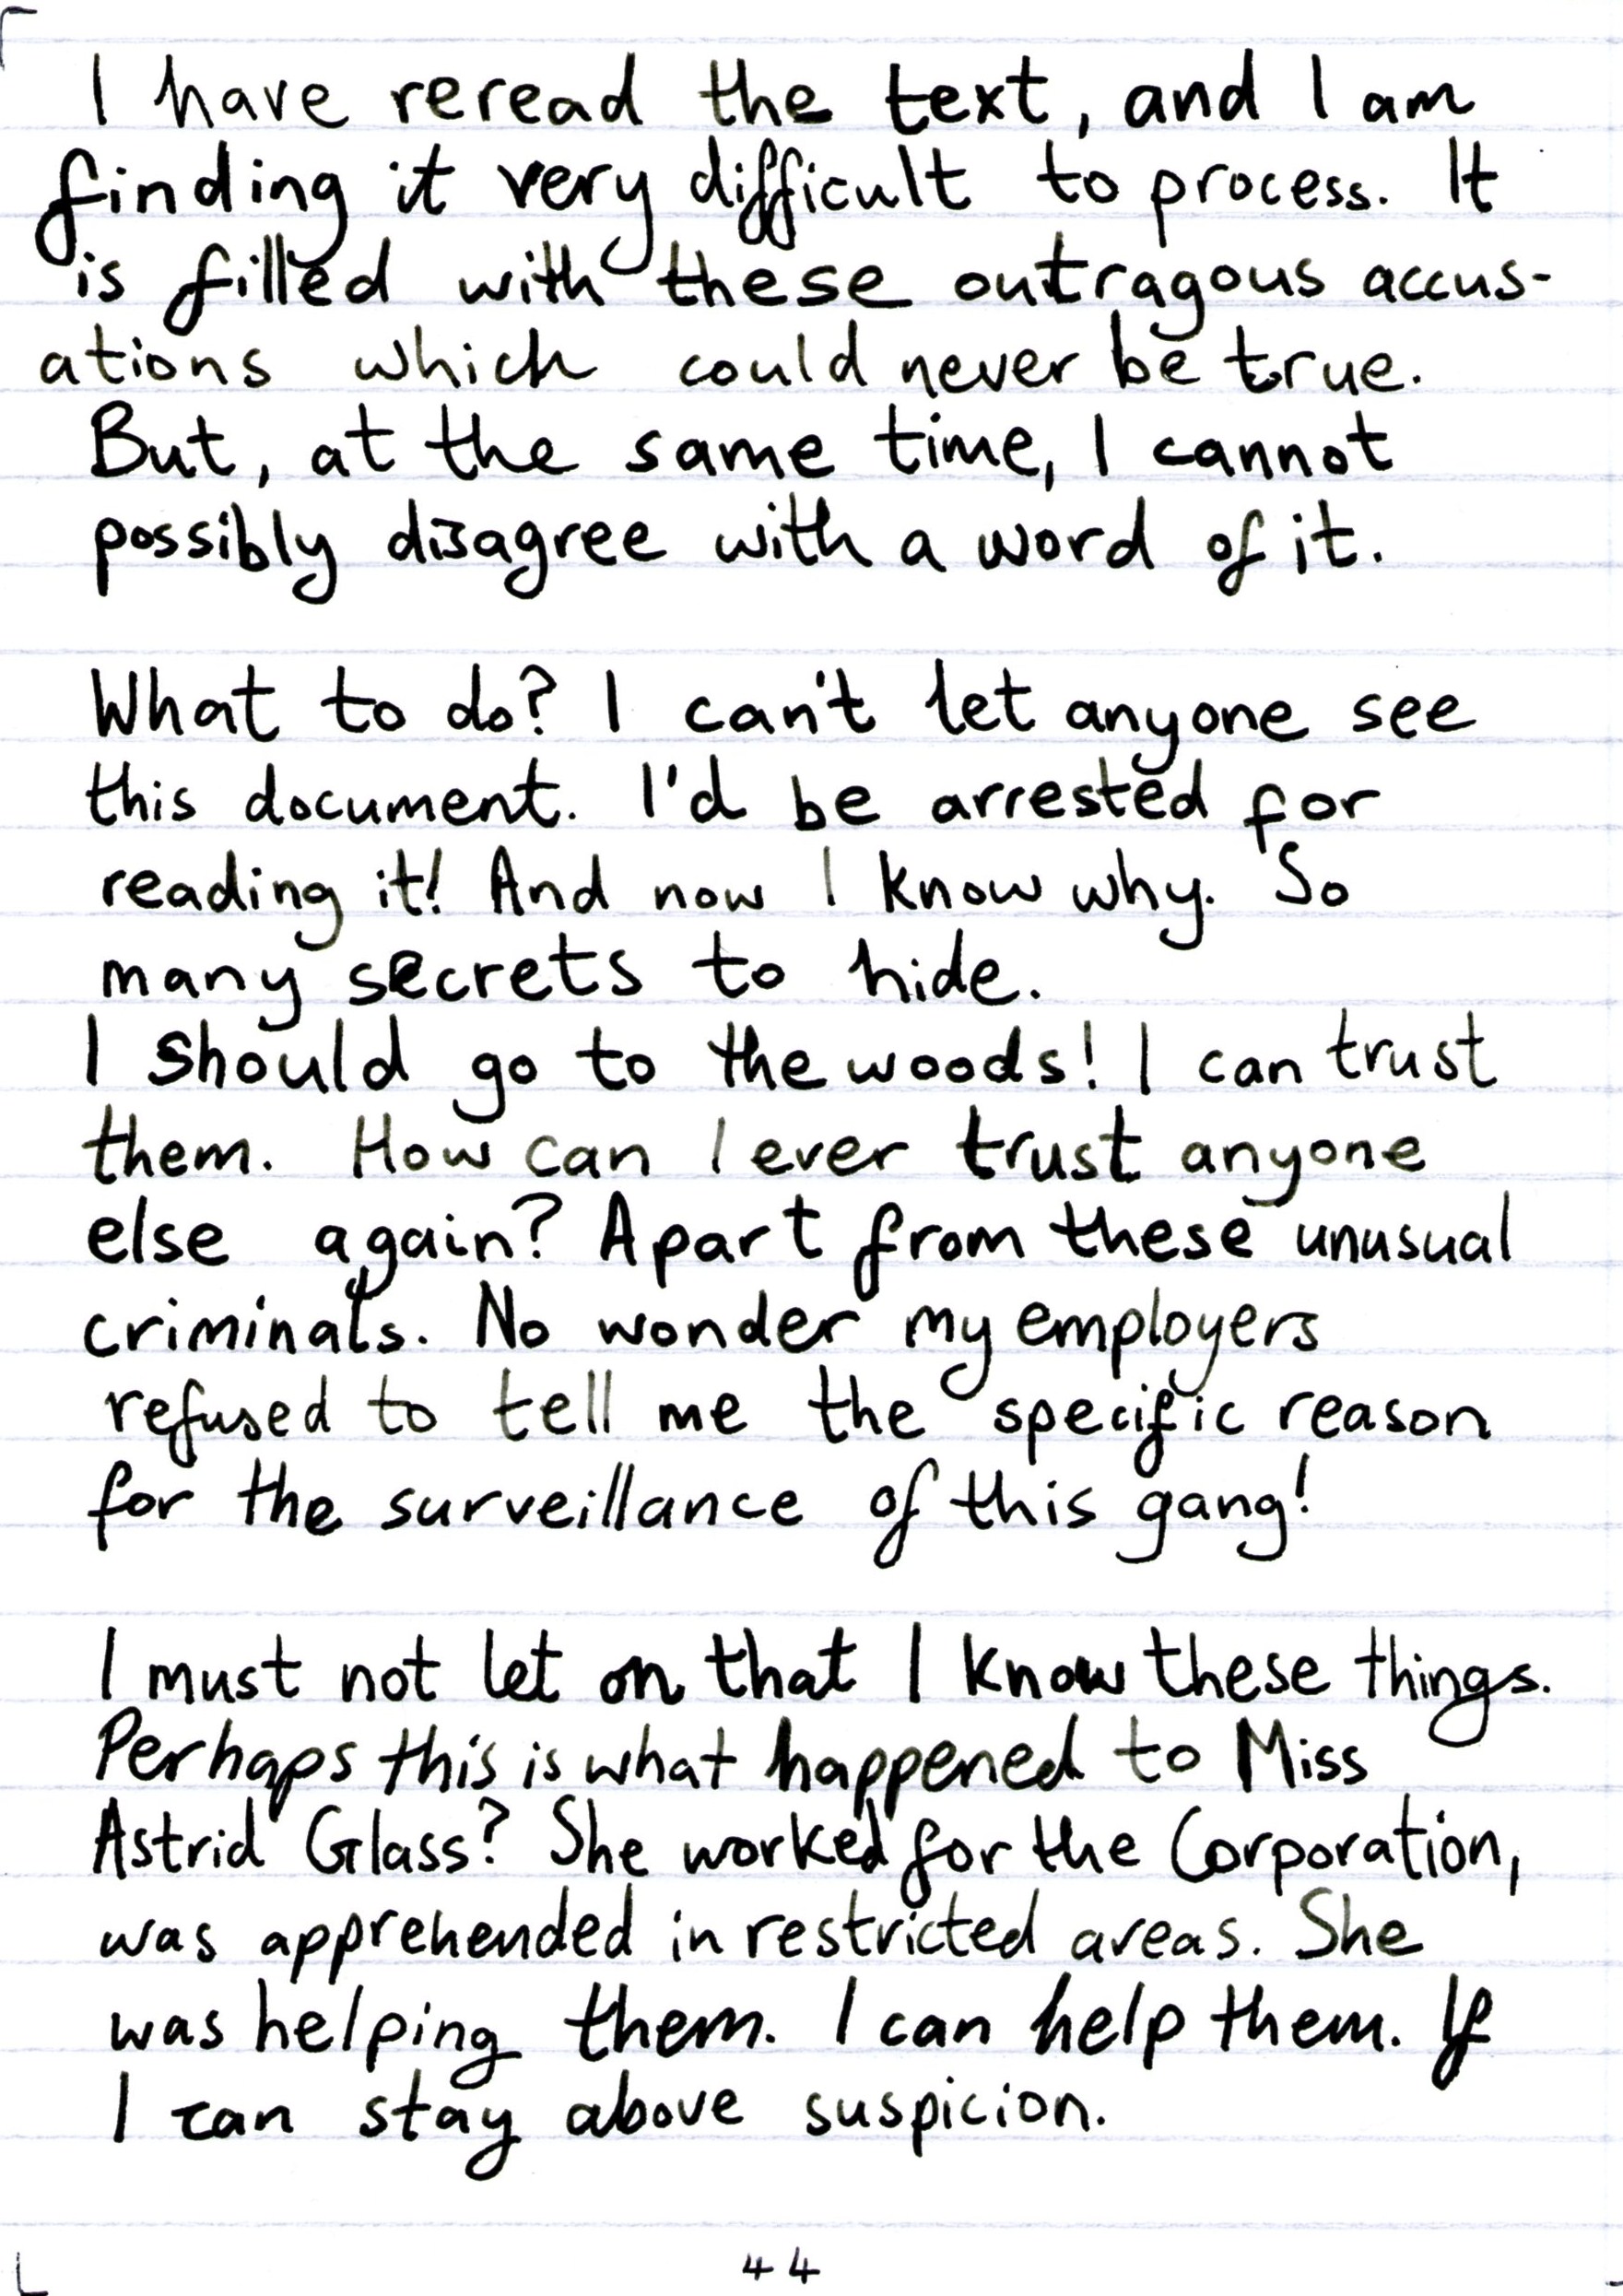 I have reread the text, and I am
finding it very difficult to process. It
is filled with these outragous accus-
ations which could never be true.
But, at the same time, I cannot
possibly disagree with a word of it.
What to do? I can't let anyone see
this document. I'd be arrested for
reading it! And now I know why. So
many secrets to hide.
I should go to the woods! I can trust
them. How can I ever trust anyone
else again? Apart from these unusual
criminals. No wonder my employers
refused to tell me the specific reason
for the surveillance of this gang!
I must not let on that I know these things.
Perhaps this is what happened to Miss
Astrid Glass? She worked for the Corporation,
was apprehended in restricted areas. She
was helping them. I can help them. If
I can stay above suspicion.
44